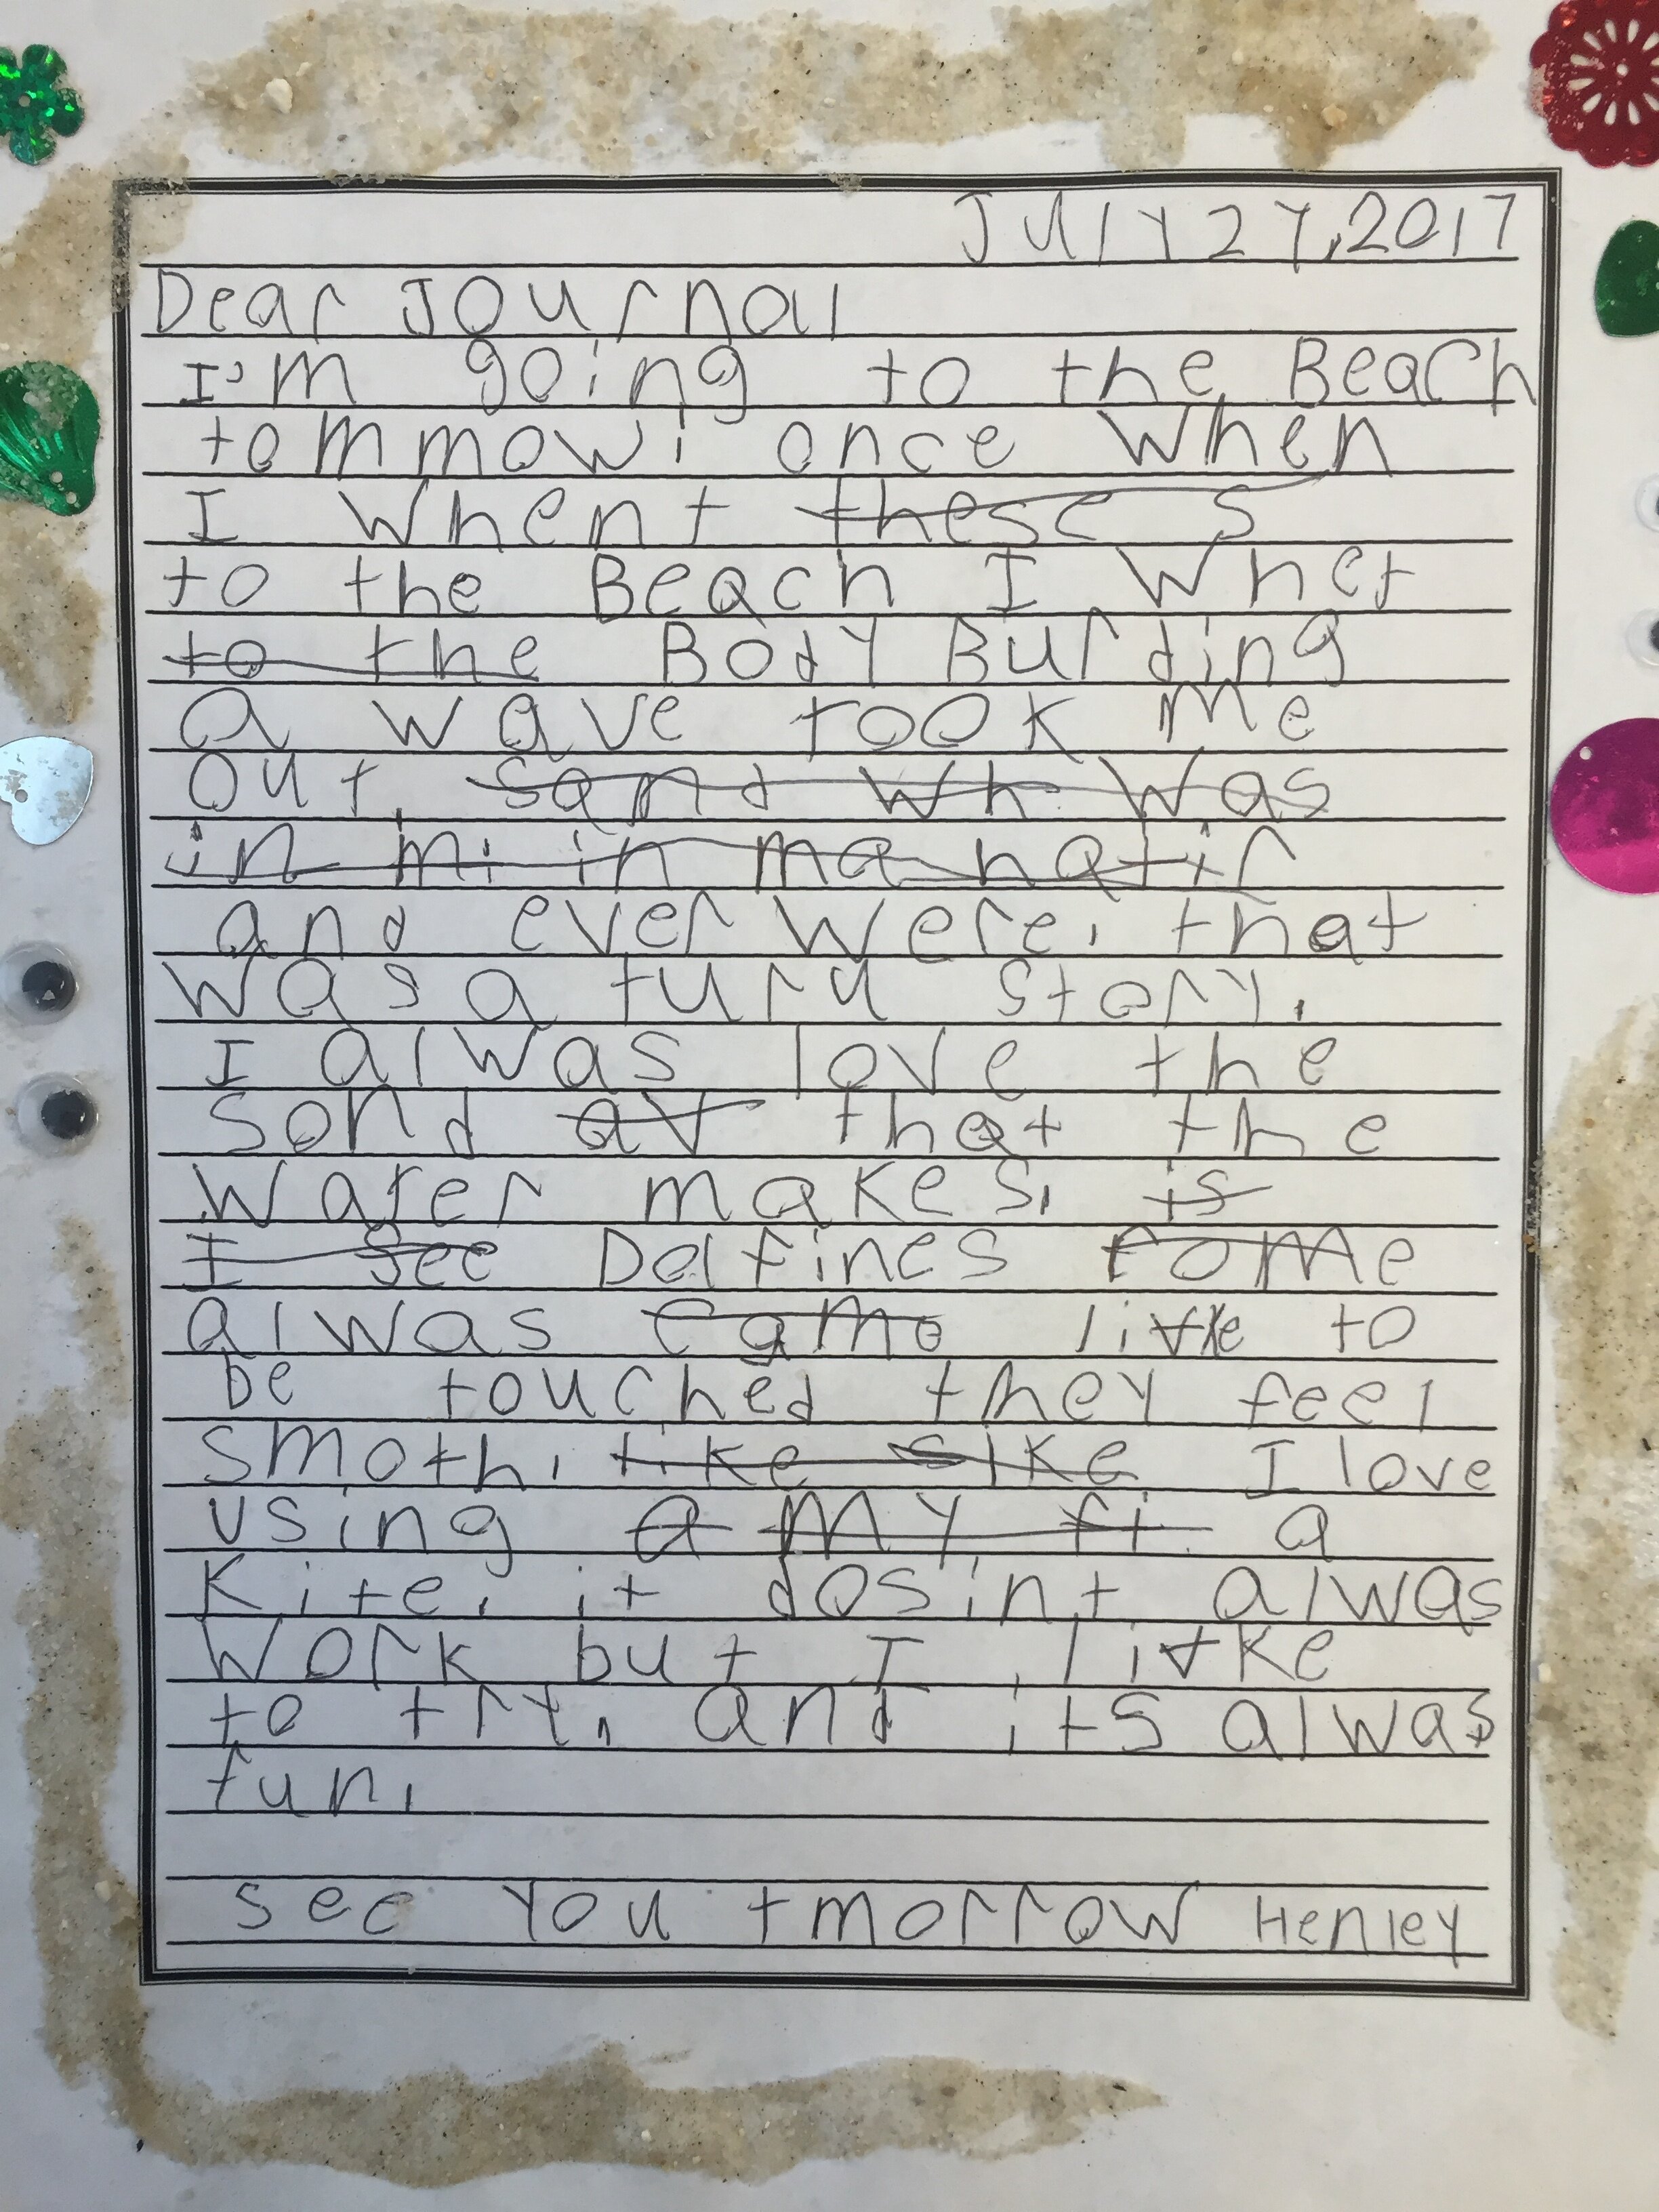 JUly 27, 2017
Dear Journal
I'm going to the Beach
tommowi once when
I whent these s
to the Beach I Whet
to the Body Burding
a wave took me
out. sand wh was
in mi in ma hatir
and ever were. that
was a turu story.
I alwas love the
sond at that the
water makes. is
I see Delfines come
alwas came like to
be touched they feel
smoth. like slke I love
using a my fi a
Kite. it dosint alwas
work but I like
to try. and its alwas
fun.
see you tmorrow Henley